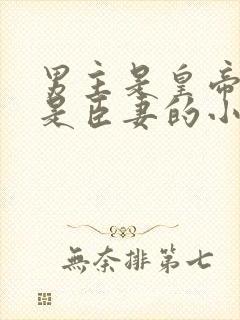 男主是皇帝
是臣妻的小
無奈排第七